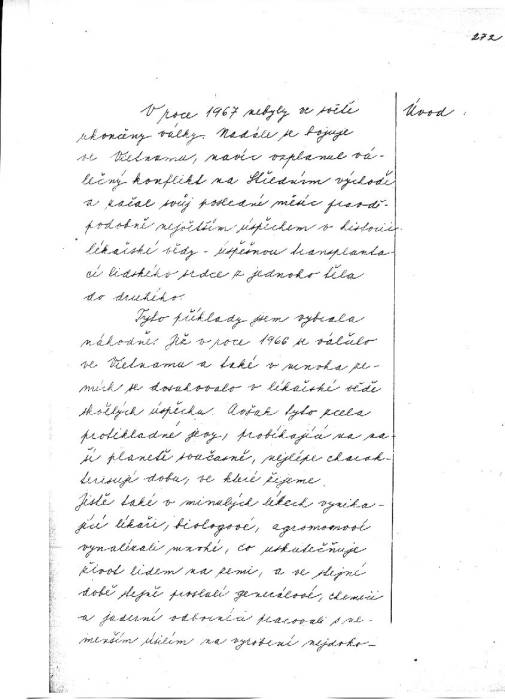 272
Úvod.
V roce 1967 nebyly ve světě
skončeny války. Nadále se bojuje
ve Vietnamu, navíc vzplanul vá-
lečný konflikt na Středním východě
a začal svůj poslední měsíc pravdě-
podobně největším úspěchem v historii
lékařské vědy - úspěšnou transplanta-
cí lidského srdce z jednoho těla
do druhého.
Tyto příklady jsem vybrala
náhodně. Již v roce 1966 se válčilo
ve Vietnamu a také v mnoha ze-
mích se dosahovalo v lékařské vědě
skvělých úspěchů. Avšak tyto zcela
protikladné jevy, probíhající na na-
ší planetě současně, nejlépe charak-
terisují dobu, ve které žijeme.
Jistě také v minulých létech vynika-
jící lékaři, biologové, agronomové
vynalézali mnohé, co uskutečňuje
život lidem na zemi, a ve stejné
době stejně proslulí generálové, chemici
a jaderní odborníci pracovali s ne-
menším úsilím na vyrobení nejdoko-